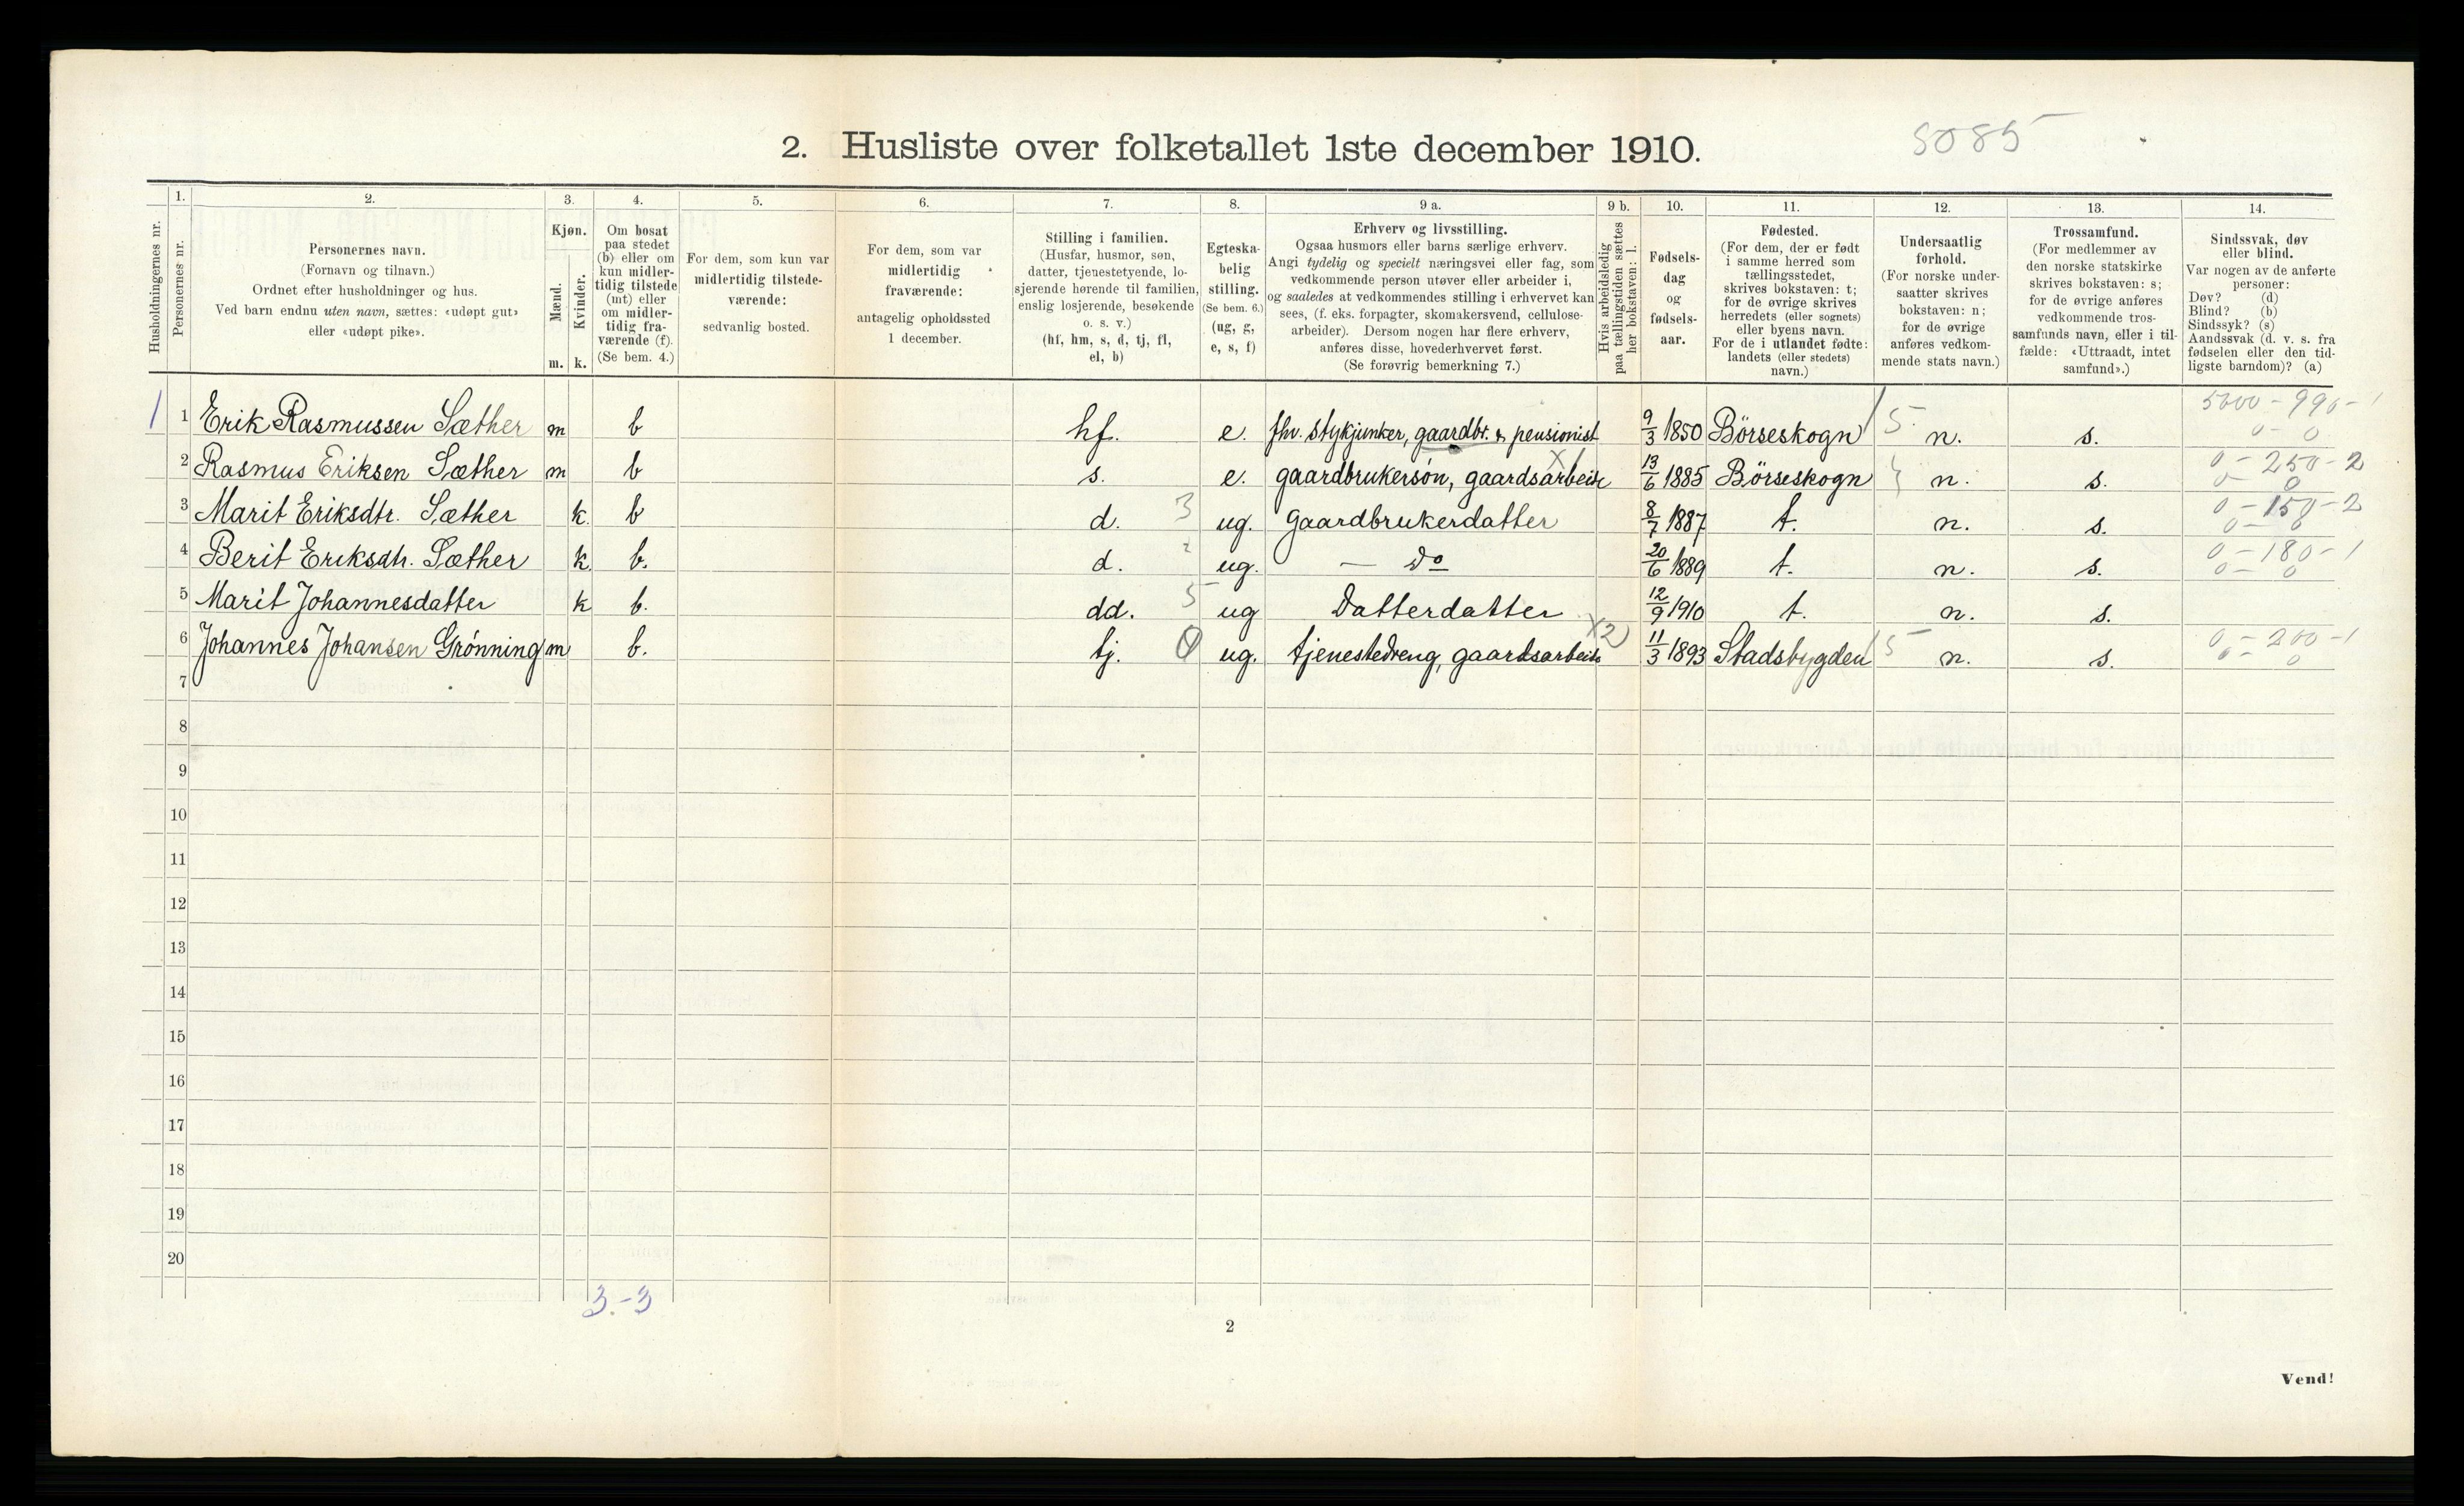 2. Husliste over folketallet 1ste december 1910.
5085
1. 2. 3. 4. 5. 6. 7. 8. 9 a. 9 b. 10. 11. 12. 13. 14.
Husholdningernes nr.
Personernes nr.
Personernes navn.
(Fornavn og tilnavn.)
Ordnet efter husholdninger og hus.
Ved barn endnu uten navn, sættes: «udøpt gut»
eller «udøpt pike».
Kjøn.
Mænd.
Kvinder.
m. k.
Om bosat
paa stedet
(b) eller om
kun midler-
tidig tilstede
(mt) eller
om midler-
tidig fra-
værende (f).
(Se bem. 4.)
For dem, som kun var
midlertidig tilstede-
værende:
sedvanlig bosted.
For dem, som var
midlertidig
fraværende:
antagelig opholdssted
1 december.
Stilling i familien.
(Husfar, husmor, søn,
datter, tjenestetyende, lo-
sjerende hørende til familien,
enslig losjerende, besøkende
o. s. v.)
(hf, hm, s, d, tj, fl,
el, b)
Egteska-
belig
stilling.
(Se bem. 6.)
(ug, g,
e, s, f)
Erhverv og livsstilling.
Ogsaa husmors eller barns særlige erhverv.
Angi tydelig og specielt næringsvei eller fag, som
vedkommende person utøver eller arbeider i,
og saaledes at vedkommendes stilling i erhvervet kan
sees, (f. eks. forpagter, skomakersvend, cellulose-
arbeider). Dersom nogen har flere erhverv,
anføres disse, hovederhvervet først.
(Se forøvrig bemerkning 7.)
Hvis arbeidsledig
paa tællingstiden sættes
her bokstaven: l.
Fødsels-
dag
og
fødsels-
aar.
Fødested.
(For dem, der er født
i samme herred som
tællingsstedet,
skrives bokstaven: t;
for de øvrige skrives
herredets (eller sognets)
eller byens navn.
For de i utlandet fødte:
landets (eller stedets)
navn.)
Undersaatlig
forhold.
(For norske under-
saatter skrives
bokstaven: n;
for de øvrige
anføres vedkom-
mende stats navn.)
Trossamfund.
(For medlemmer av
den norske statskirke
skrives bokstaven: s;
for de øvrige anføres
vedkommende tros-
samfunds navn, eller i til-
fælde: «Uttraadt, intet
samfund».)
Sindssvak, døv
eller blind.
Var nogen av de anførte
personer:
Døv? (d)
Blind? (b)
Sindssyk? (s)
Aandssvak (d. v. s. fra
fødselen eller den tid-
ligste barndom)? (a)
1 1 Erik Rasmussen Sæther m b hf. e. fhv. stykjunker, gaardbr. & pensionist 9/3 1850 Börseskogn 5 n. s. 0 - 0
2 Rasmus Eriksen Sæther m b s. e. gaardbrukersön, gaardsarbeide X1 13/6 1885 Börseskogn n. s. 0 - 250 - 2 0 - 0
3 Marit Eriksdtr. Sæther k. b d. 3 ug. gaardbrukerdatter 8/7 1887 t. n. s. 0 - 150 - 2 0 - 0
4 Berit Eriksdtr. Sæther k. b. d. ug. — Do 20/6 1889 t. n. s. 0 - 180 - 1 0 - 0
5 Marit Johannesdatter k b. dd. 5 ug Datterdatter 12/9 1910 t. n. s.
6 Johannes Johansen Grönning m b. tj. 0 ug. tjenestedreng, gaardsarbeide X2 11/3 1893 Stadsbygden 5 n. s. 0 - 200 - 1 0 - 0
7
8
9
10
11
12
13
14
15
16
17
18
19
20
3.-3
2
Vend!